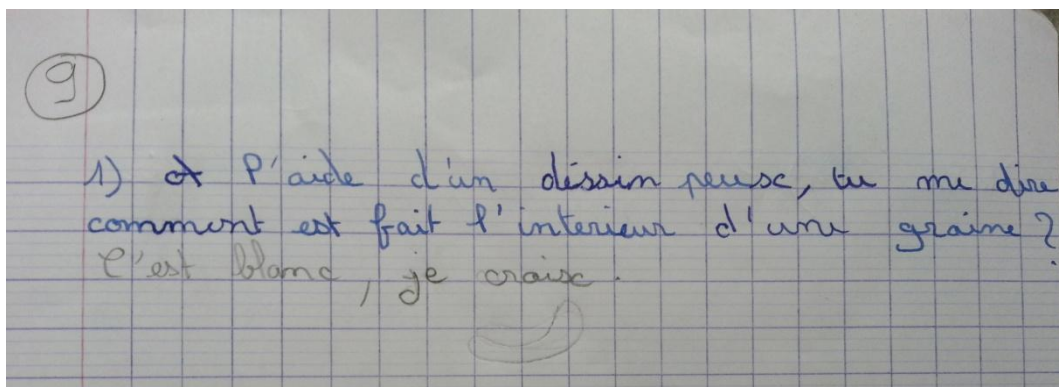 9
1) A l'aide d'un déssin peusc, tu me dire
comment est fait l'interieur d'une graine ?
C'est blanc, je croisc.